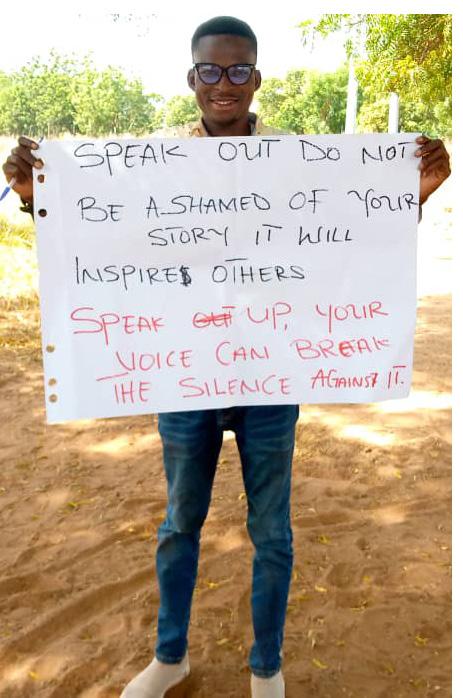 SPEAK OUT DO NOT
BE ASHAMED OF YOUR
STORY IT WILL
INSPIRE OTHERS
SPEAK UP, YOUR
VOICE CAN BREAK
THE SILENCE AGAINST IT.